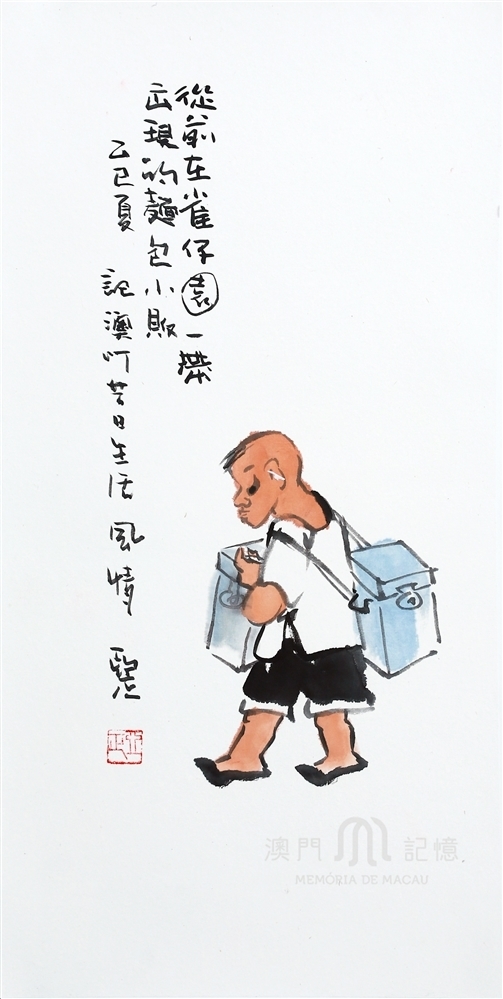 從前在雀仔園一帶
出現的麵包小販
乙巳夏 記澳門昔日生活風情
澳門記憶
MEMÓRIA DE MACAU